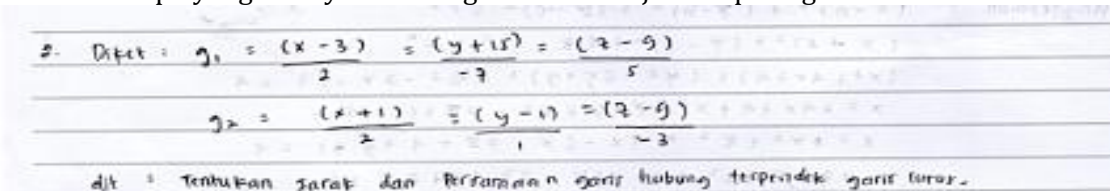 2. Diket : g₁ = (x - 3) / 2 = (y + 15) / -7 = (z - 9) / 5
g₂ = (x + 1) / 2 = (y - 1) / 1 = (z - 9) / -3
dit : Tentukan jarak dan Persamaan garis hubung terpendek garis lurus.